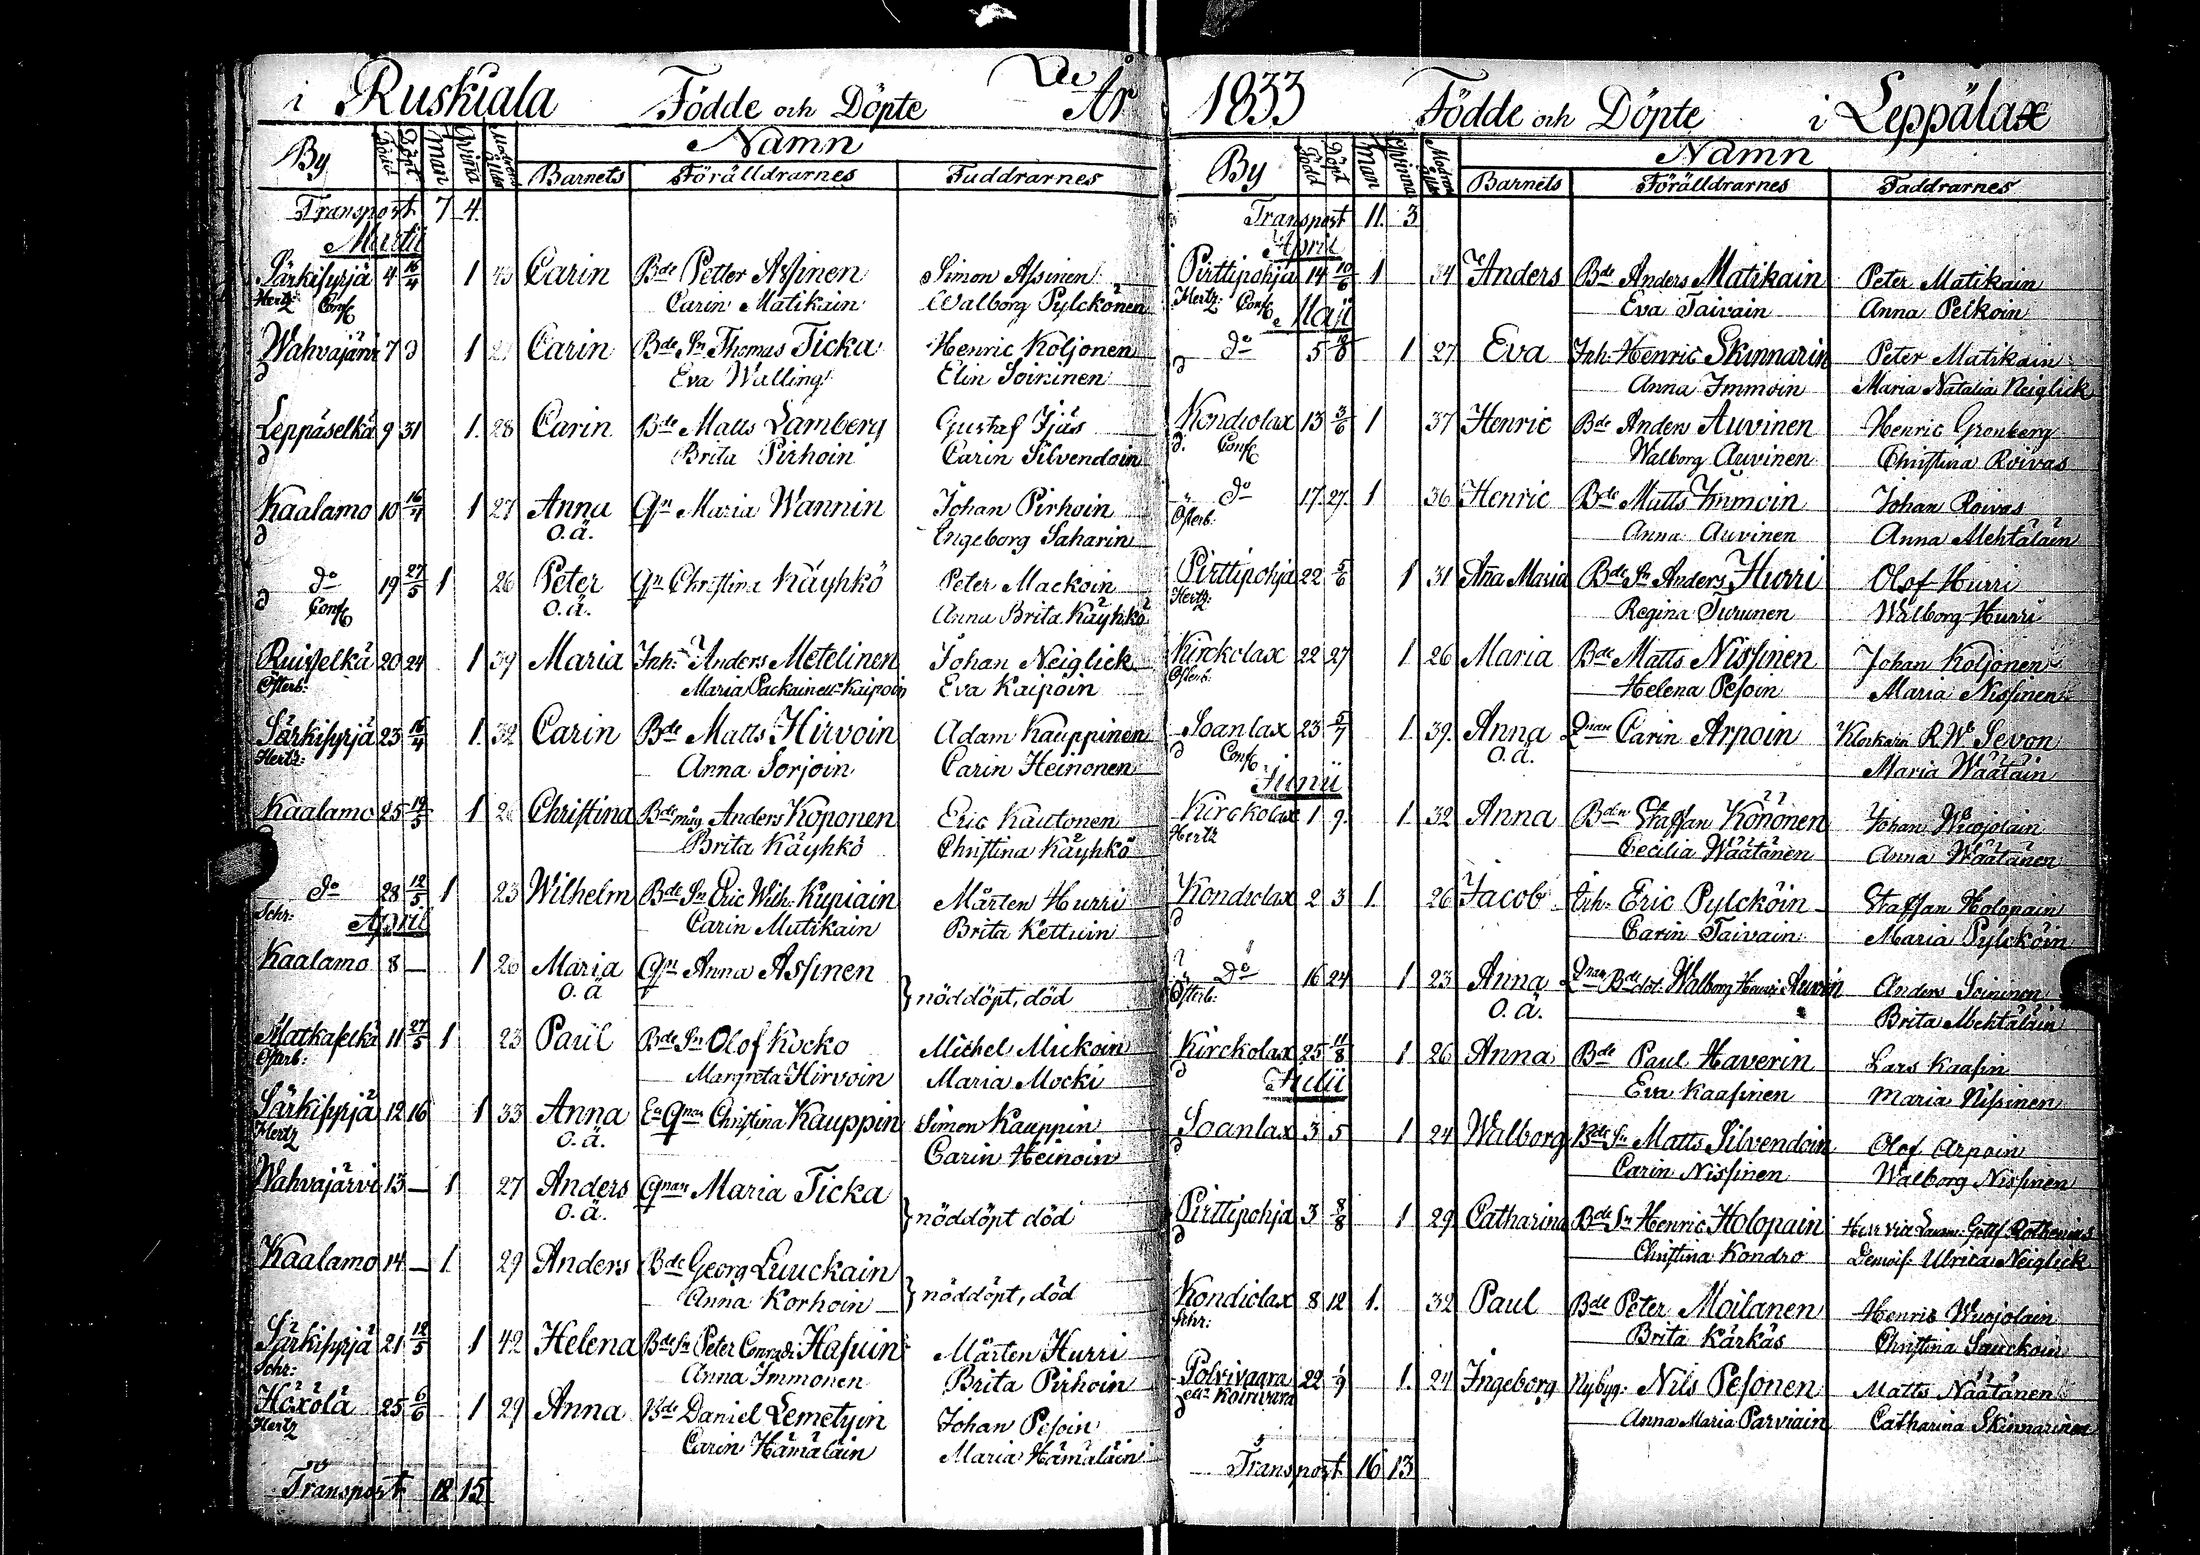 i Ruskiala Födde och Döpte År
By Född Döpt Man Qvinna Modrens ålder Namn
Barnets Förälldrarnes Faddrarnes
Transport 7 4.
Martii
Särkisyrjä 4 16/4 1 43 Carin Bde Petter Assinen Simon Assinen
Hertz Conf Carin Matikain Walborg Pylckönen
Wahvajärvi 7 d 1 27 Carin Bde Sn Thomas Ticka Henric Koljonen
d Eva Walling Elin Soininen
Leppäselkä 9 31 1. 28 Carin Bde Matts Lamberg Gustaf Ijäs
d Brita Pirhoin Carin Silvendoin
Kaalamo 10 16/4 1 27 Anna Qn Maria Wannin Johan Pirhoin
d o.ä. Engeborg Saharin
do 19 27/5 1 26 Peter Qn Christina Käyhkö Peter Mackoin
d Conf o.ä. Anna Brita Käyhkö
Ruisselkä 20 24 1 39 Maria Inh: Anders Metelinen Johan Neiglick
Österb: Maria Packain ell: Kaipoin Eva Kaipoin
Särkisyrjä 23 16/4 1. 32 Carin Bde Matts Hirvoin Adam Kauppinen
Hertz: Anna Sorjoin Carin Heinonen
Kaalamo 25 12/5 1 26 Christina Bde måg Anders Koponen Eric Kautonen
Brita Käyhkö Christina Käyhkö
do 28 12/5 1 23 Wilhelm Bde Sn Eric Wilh: Kupiain Mårten Hurri
Schr: Carin Matikain Brita Kettuin
April
Kaalamo 8 — 1 20 Maria Qn Anna Assinen
o.ä } nöddöpt, död
Matkaselkä 11 27/5 1 23 Paul Bde Sn Olof Kocko Michel Mickoin
Österb: Margreta Hirvoin Maria Mocki
Särkisyrjä 12 16 1 33 Anna En Qnan Christina Kauppin Simon Kauppin
Hertz o.ä. Carin Heinoin
Wahvajärvi 13 — 1 27 Anders Qnan Maria Ticka
o.ä. } nöddöpt död
Kaalamo 14 — 1. 29 Anders Bde Georg Luuckain
Anna Korhoin } nöddöpt, död
Särkisyrjä 21 12/5 1 42 Helena Bde Sn Peter Conradi Hasuin Mårten Hurri
Schr: Anna Immonen Brita Pirhoin
Höxölä 25 6/6 1 29 Anna Bde Daniel Lemetyin Johan Pesoin
Hertz Carin Hämäläin Maria Hämäläin
Transport 12 15
1833 Födde och Döpte i Leppälax
By Född Döpt Man Qvinna Modrens ålder Namn
Barnets Förälldrarnes Faddrarnes
Transport 11. 3
April
Pirttipohja 14 10/6 1 34 Anders Bde Anders Matikain Peter Matikain
Hertz: Conf Eva Taivain Anna Pelkoin
Maji
do 5 1 27 Eva Inh: Henric Skinnarin Peter Matikain
d Anna Immoin Maria Natalia Neiglick
Kondiolax 13 3/6 1 37 Henric Bde Anders Auvinen Henric Gronberg
d. Conf Walborg Auvinen Christina Roivas
do 17. 27. 1 36 Henric Bde Matts Immoin Johan Roivas
Österb: Anna Auvinen Anna Mehtäläin
Pirttipohja 22 5/6 1 31 Anna Maria Bde Sn Anders Hurri Olof Hurri
Hertz: Regina Turunen Walborg Hurri
Kirckolax 22 27 1. 26 Maria Bde Matts Nissinen Johan Koljonen
Österb: Helena Pesoin Maria Nissinen
Soanlax 23 5/7 1. 39. Anna Qnan Carin Arpoin Klockarn R W Sevon
d Conf o.ä. Maria Wäätäin
Junii
Kirckolax 1 9. 1. 32 Anna Bdn Staffan Könönen Johan Wuojolain
Hertz Cecilia Wäätänen Anna Wäätänen
Kondiolax 2 3 1. 26 Jacob Inh: Eric Pylcköin Staffan Holopain
d Carin Taivain Maria Pylcköin
do 16 24 1 23 Anna Qnan Bde dot: Walborg Auvin Anders Soininen
Österb: o.ä. Brita Mehtäläin
Kirckolax 25 11/8 1 26 Anna Bde Paul Haverin Lars Kaasin
d Eva Kaasinen Maria Nissinen
Julii
Soanlax 3 5 1 24 Walborg Bde Sn Matts Silvendoin Olof Arpoin
d Carin Nissinen Walborg Nissinen
Pirttipohja 3 8/8 1 29 Catharina Bde Sn Henric Holopain Herr
d Christina Kondro Demois: Ulrica Neiglick
Kondiolax 8 12 1. 32 Paul Bde Peter Moilanen Henric Wuojolain
Schr: Brita Kärkäs Christina Sauckoin
Polvivaara 22 1/9 1. 24 Ingeborg Nybyg: Nils Pesonen Matts Näätänen
Koirivara Anna Maria Parviain Catharina Skinnarinen
Transport 16 13